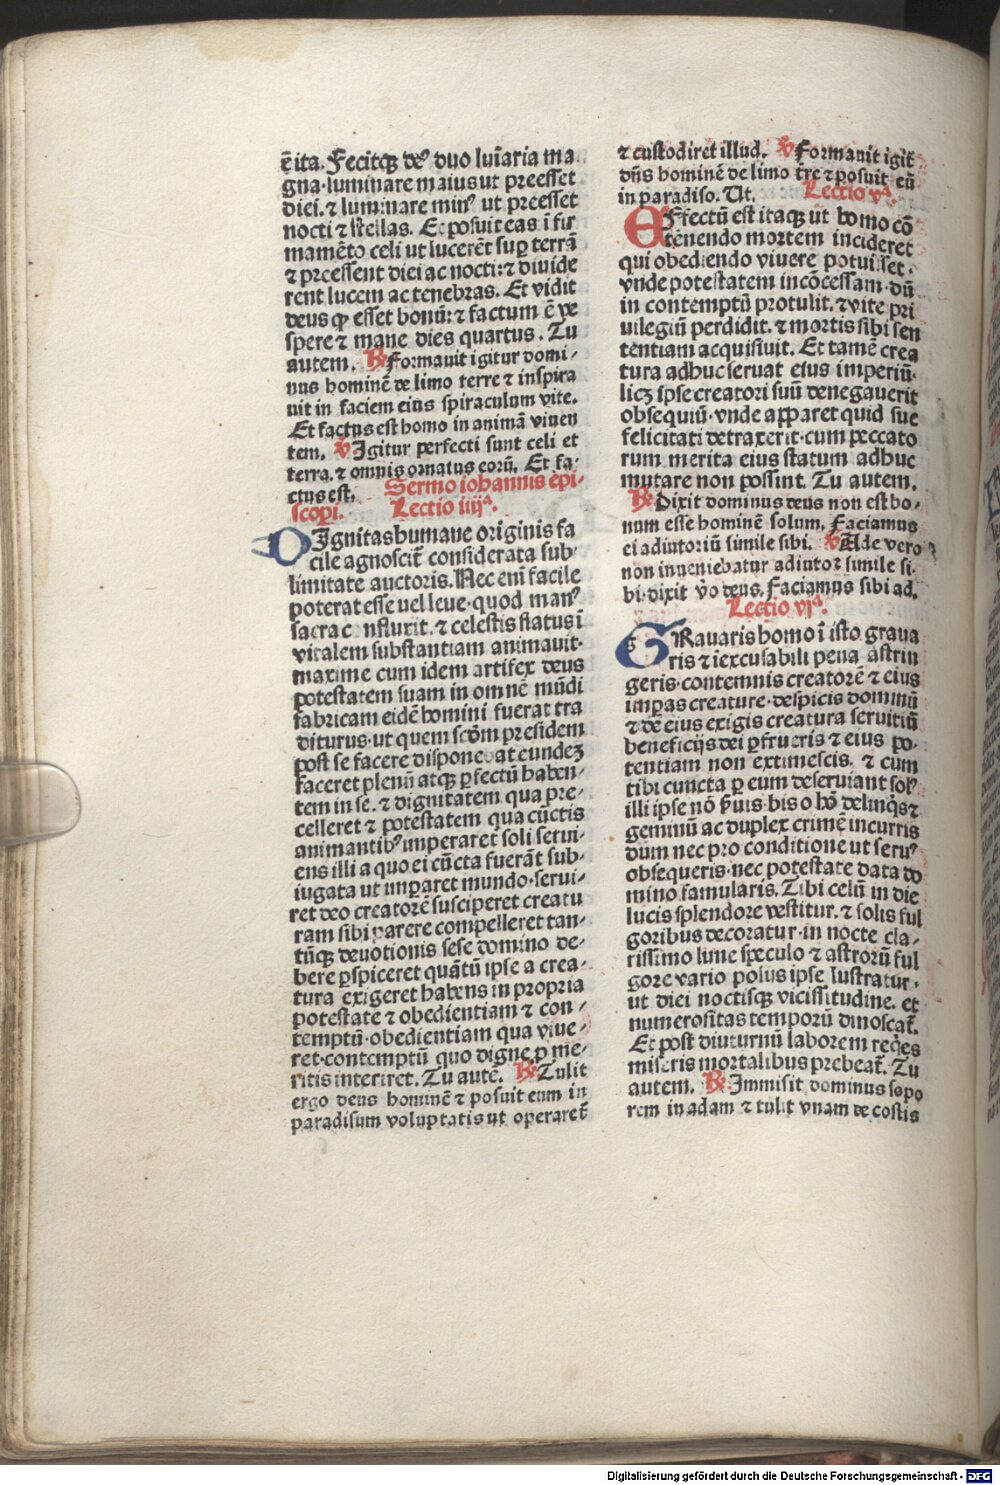 ē ita. Fecitqꝫ de⁹ duo luīaria ma
gna·luminare maius ut preesset
diei.⁊ luminare min⁹ ut preesset
nocti ⁊ stellas. Et posuit eas ī fir
mamēto celi ut lucerēt suꝑ terrā
⁊ preessent diei ac nocti:⁊ diuide
rent lucem ac tenebras. Et vidit
deus ꝙ esset bonū:⁊ factum ē ve
spere ⁊ mane dies quartus. Tu
autem. ℟ Formauit igitur domi/
nus hominē de limo terre ⁊ inspira
uit in faciem eius spiraculum vite.
Et factus est homo in animā viuen
tem. ℣ Igitur perfecti sunt celi et
terra.⁊ omnis ornatus eorū. Et fa/
ctus est. Sermo iohannis epi/
scopi. Lectio iiijᵃ.
DIgnitas humane originis fa
cile agnoscit̄ considerata sub/
limitate auctoris. Nec enī facile
poterat esse uel leue·quod man⁹
sacra c nfluxit.⁊ celestis flatus ī
vitalem substantiam animauit·
maxime cum idem artifex deus
potestatem suam in omnē mūdi
fabricam eidē homini fuerat tra
diturus·ut quem scōm presidem
post se facere dispone at eundeꝫ
faceret plenū atqꝫ ꝑfectū haben/
tem in se.⁊ dignitatem qua pre/
celleret ⁊ potestatem qua cūctis
animantibꝰ imperaret soli serui/
ens illi a quo ei cūcta fuerāt sub/
iugata ut imꝑaret mundo·serui/
ret deo creatorē susciperet creatu
ram sibi parere compelleret tan/
tūqꝫ deuotionis sese domino de/
bere ꝑspiceret quātū ipse a crea/
tura exigeret habens in propria
potestate ⁊ obedientiam ⁊ con/
temptū·obedientiam qua viue/
ret·contemptū quo digne ꝓ me/
ritis interiret. Tu autē. ℟ Tulit
ergo deus hominē ⁊ posuit eum in
paradisum voluptatis ut operaret̄
⁊ custodiret illud. ℣ Formauit igit̄
dn̄s hominē de limo tr̄e ⁊ posuit eū
in paradiso. Ut. Lectio vᵃ.
EFfectū est itaqꝫ ut homo cō
tēnendo mortem incideret
qui obediendo viuere potuisset.
vnde potestatem incōcessam dū
in contemptū protulit.⁊ vite pri
uilegiū perdidit.⁊ mortis sibi sen
tentiam acquisiuit. Et tamē crea
tura adhuc seruat eius imperiū·
licꝫ ipse creatori suū denegauerit
obsequiū·vnde apparet quid sue
felicitati detraxerit·cum peccato
rum merita eius statum adhuc
mutare non possint. Tu autem.
℟ Dixit dominus deus non est bo/
num esse hominē solum. Faciamus
ei adiutoriū simile sibi. ℣ Ade vero
non inueniebatur adiutor simile si/
bi·dixit v̄o deus. Faciamus sibi ad.
Lectio vjᵃ.
GRauaris homo ī isto graua
ris ⁊ īexcusabili pena astrin
geris·contemnis creatorē ⁊ eius
imꝑas creature·despicis dominū
⁊ de eius exigis creatura seruitiū
beneficijs dei ꝑfrueris ⁊ eius po/
tentiam non extimescis.⁊ cum
tibi cuncta ꝑ eum deseruiant sol⁹
illi ipse nō s̄uis·his o hō delinq̄s ⁊
geminū ac duplex crimē incurris
dum nec pro conditione ut seru⁹
obsequeris·nec potestate data do
mino famularis. Tibi celū in die
lucis splendore vestitur.⁊ solis ful
goribus decoratur·in nocte cla/
rissimo lune speculo ⁊ astrorū ful
gore vario polus ipse lustratur·
ut diei noctisqꝫ vicissitudine. et
numerositas temporū dinoscat̄.
Et post diuturnū laborem req̄es
miseris mortalibus prebeat̄. Tu
autem. ℟ Immisit dominus sopo
rem in adam ⁊ tulit vnam de costis
Digitalisierung gefördert durch die Deutsche Forschungsgemeinschaft - DFG